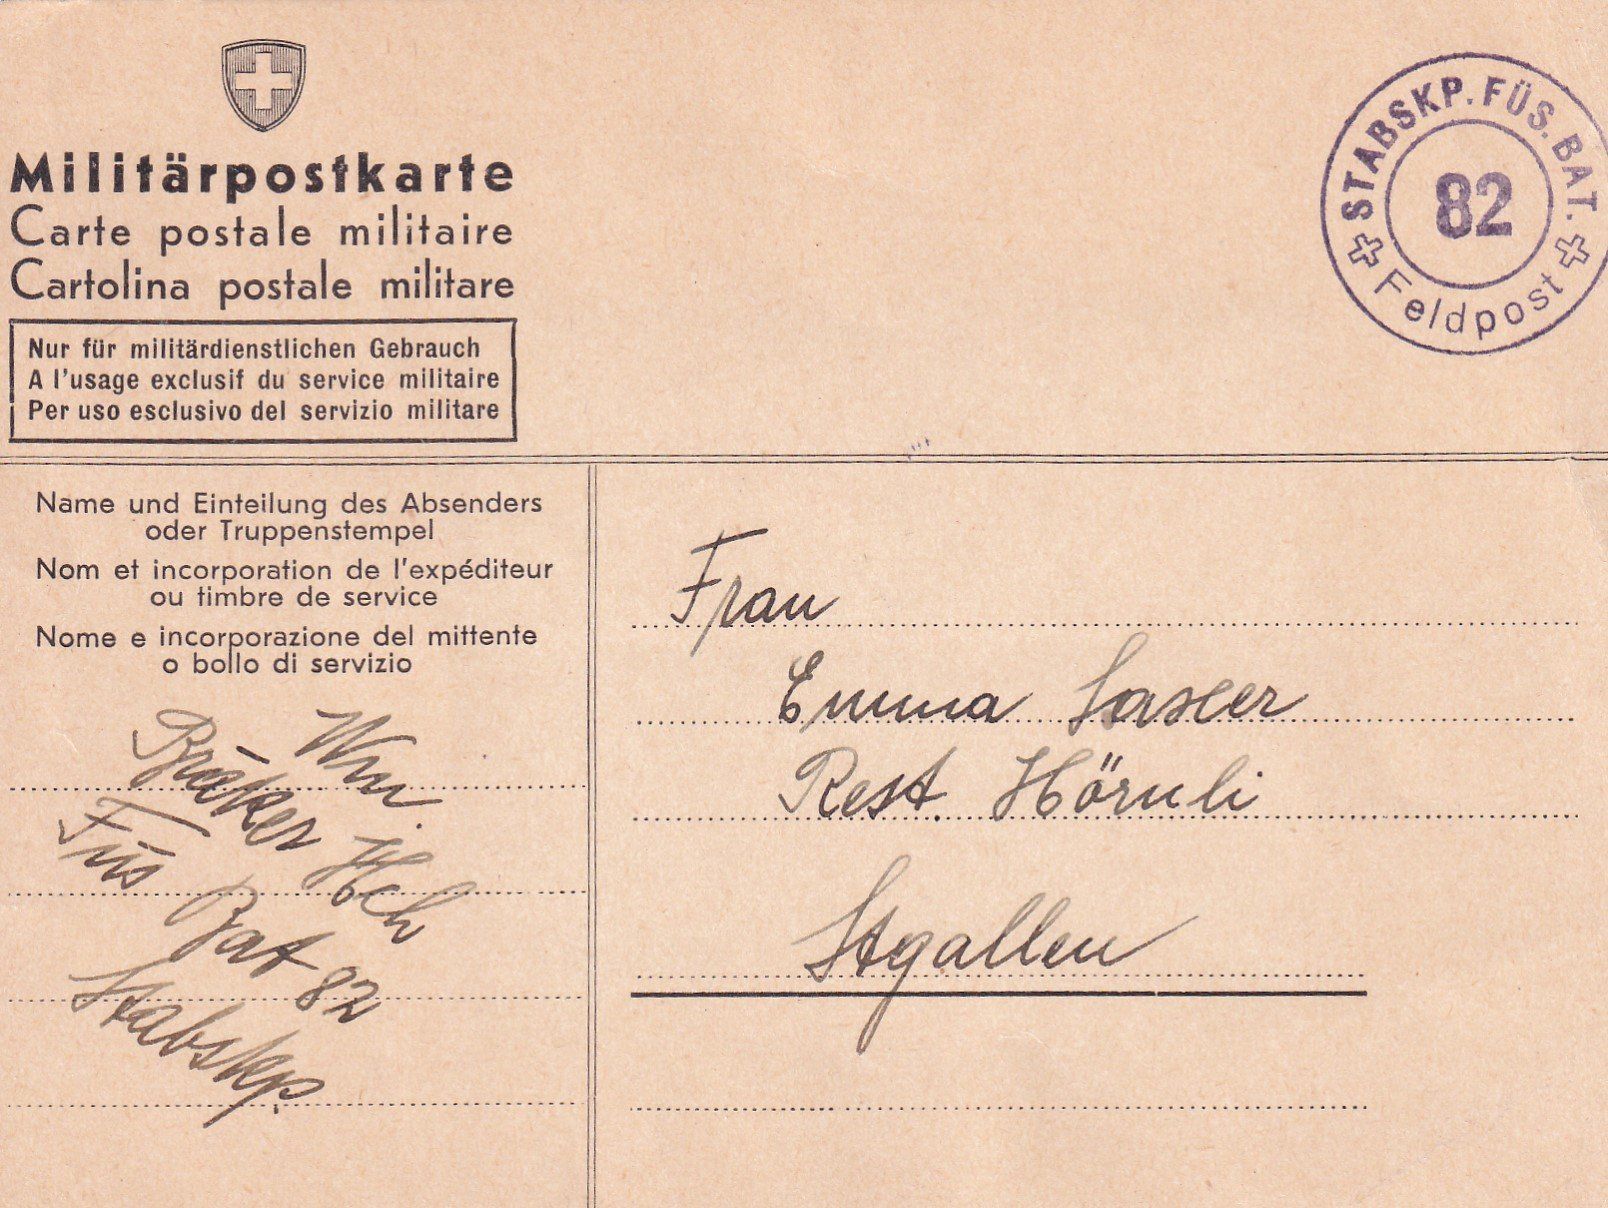 Militärpostkarte
Carte postale militaire
Cartolina postale militare
Nur für militärdienstlichen Gebrauch
A l'usage exclusif du service militaire
Per uso esclusivo del servizio militare
STABSKP. FÜS. BAT.
82
Feldpost
Name und Einteilung des Absenders
oder Truppenstempel
Nom et incorporation de l'expéditeur
ou timbre de service
Nome e incorporazione del mittente
o bollo di servizio
Bräker Hch
Füs Bat 82
Stabskp.
Frau
Emma Saxer
Rest. Hörnli
Stgallen